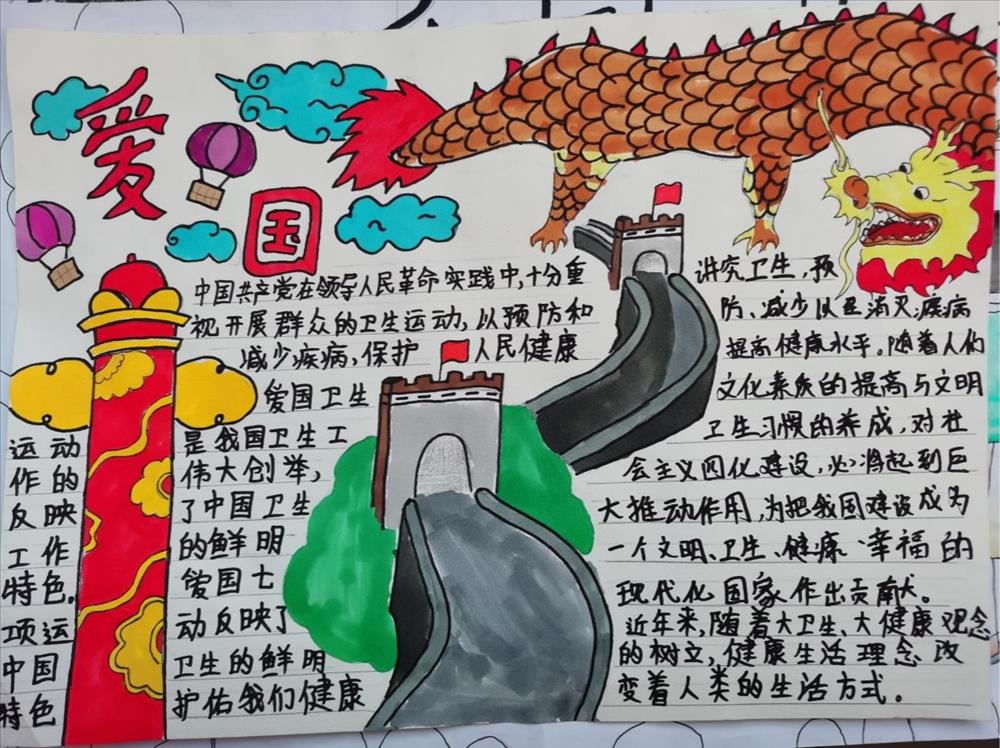 爱
国
中国共产党在领导人民革命实践中,十分重
视开展群众的卫生运动,以预防和
减少疾病,保护 人民健康
爱国卫生
运动 是我国卫生工
作的 伟大创举,
反映 了中国卫生
工作 的鲜明
特色. 爱国七
项运 动反映了
中国 卫生的鲜明
特色 护佑我们健康
讲究卫生,预
防、减少以至消灭疾病
提高健康水平。随着人们
文化素质的提高与文明
卫生习惯的养成,对社
会主义四化建设,必将起到巨
大推动作用,为把我国建设成为
一个文明、卫生、健康、幸福的
现代化国家作出贡献。
近年来,随着大卫生、大健康观念
的树立,健康生活理念改
变着人类的生活方式。